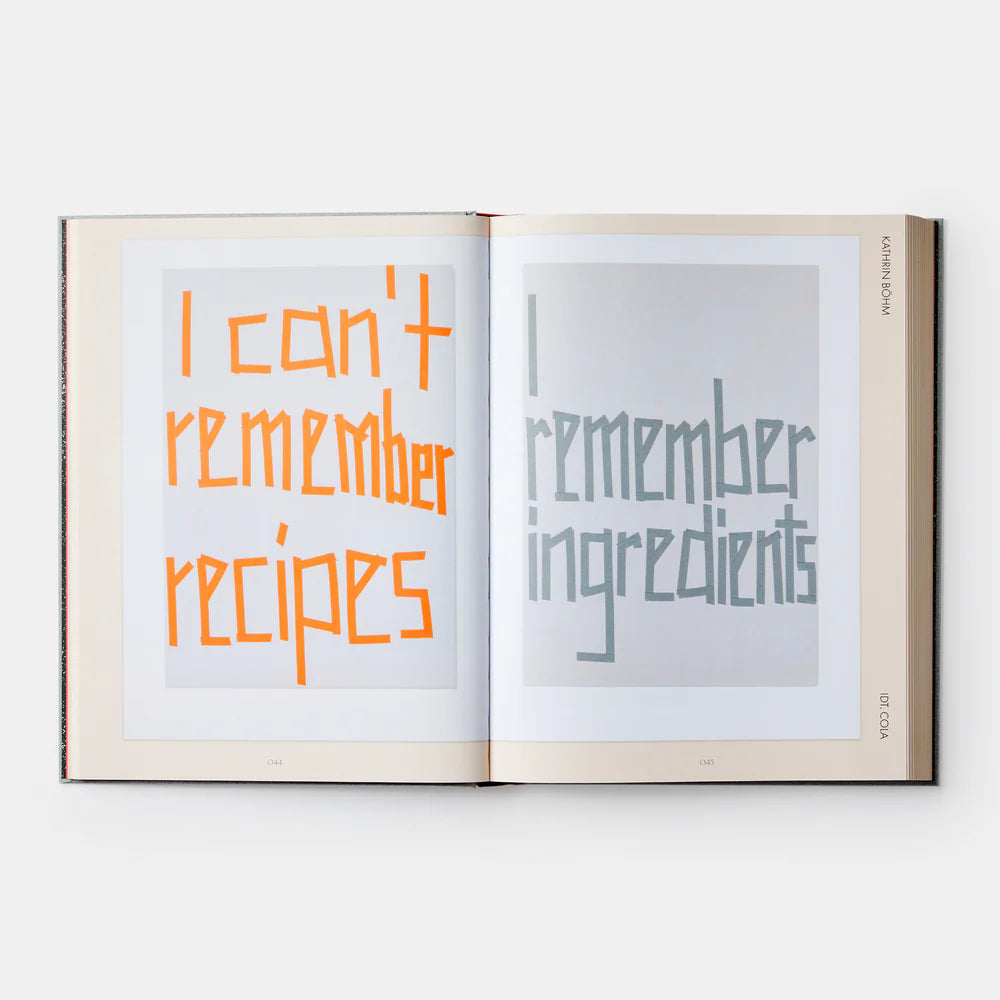 I can't
remember
recipes
044
I
remember
ingredients
045
KATHRIN BÖHM
IDT. COLA